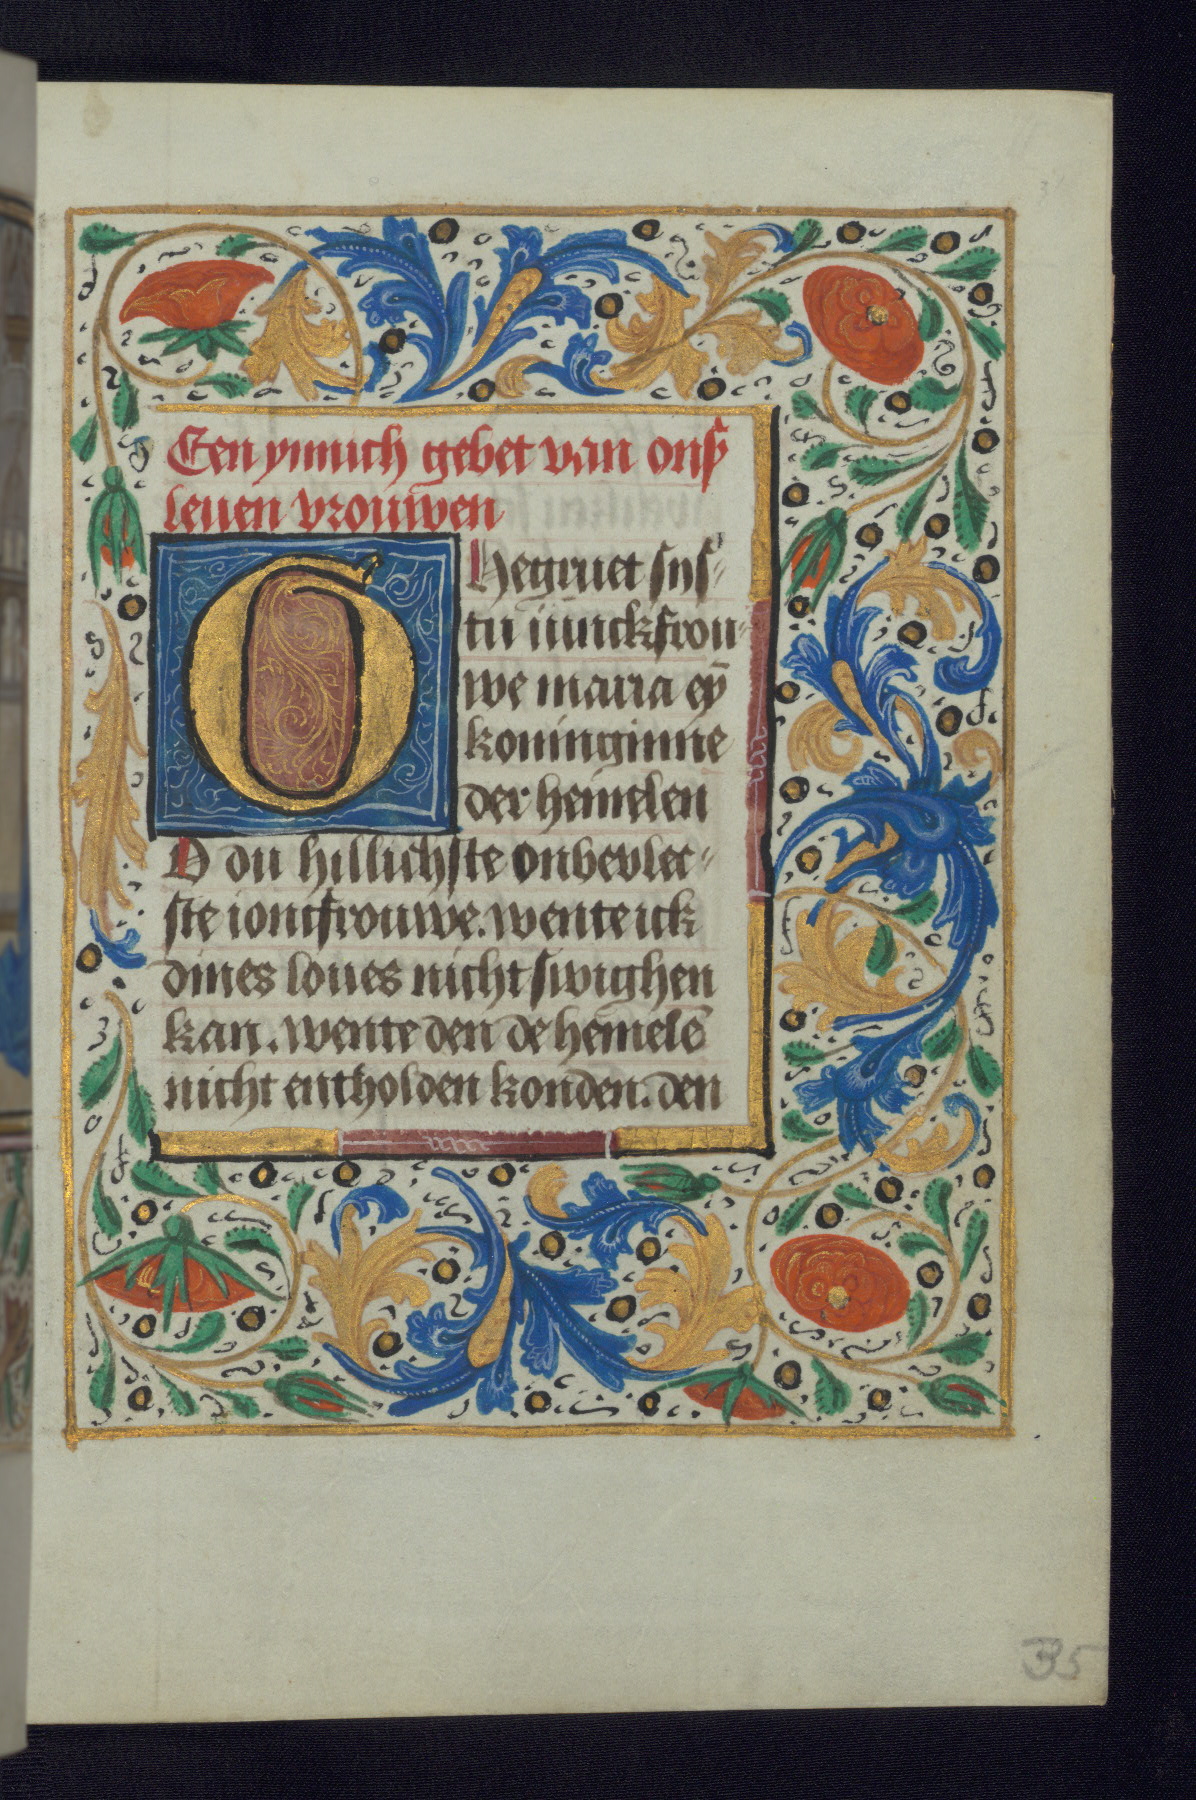 Een ynnich gebet van onſ̄
leuen vrouwen
O hegruet ſyſ-
tu iunckfrou-
we maria eȳ
koninginne
der hemelen
O du hillichſte onbevlec-
ſte ioncfrouwe. wente ick
dines loues nicht ſwighen
kan. wente den de hemelē
nicht entholden konden. den
35